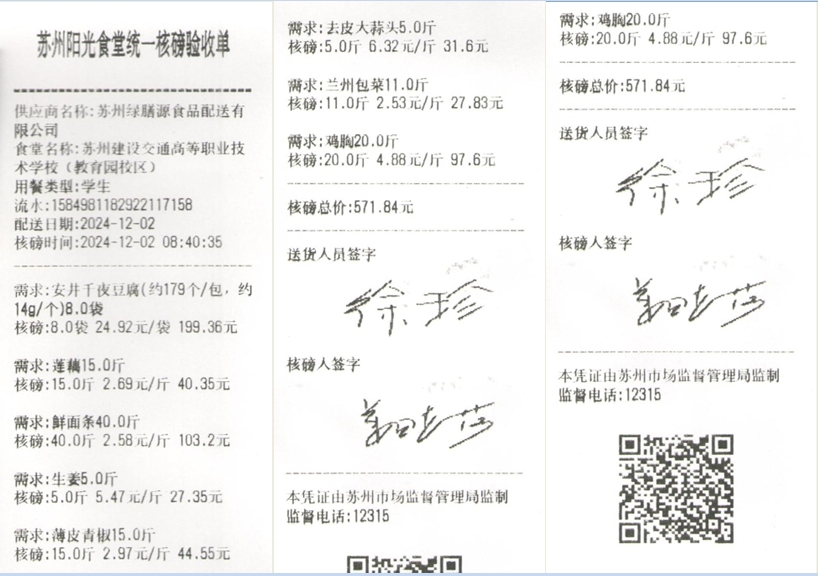 苏州阳光食堂统一核磅验收单
供应商名称:苏州绿膳源食品配送有
限公司
食堂名称:苏州建设交通高等职业技
术学校（教育园校区）
用餐类型:学生
流水:1584981182922117158
配送日期:2024-12-02
核磅时间:2024-12-02 08:40:35
需求:安井千夜豆腐(约179个/包，约
14g/个)8.0袋
核磅:8.0袋 24.92元/袋 199.36元
需求:莲藕15.0斤
核磅:15.0斤 2.69元/斤 40.35元
需求:鲜面条40.0斤
核磅:40.0斤 2.58元/斤 103.2元
需求:生姜5.0斤
核磅:5.0斤 5.47元/斤 27.35元
需求:薄皮青椒15.0斤
核磅:15.0斤 2.97元/斤 44.55元
需求:去皮大蒜头5.0斤
核磅:5.0斤 6.32元/斤 31.6元
需求:兰州包菜11.0斤
核磅:11.0斤 2.53元/斤 27.83元
需求:鸡胸20.0斤
核磅:20.0斤 4.88元/斤 97.6元
核磅总价:571.84元
送货人员签字
徐珍
核磅人签字
本凭证由苏州市场监督管理局监制
监督电话:12315
需求:鸡胸20.0斤
核磅:20.0斤 4.88元/斤 97.6元
核磅总价:571.84元
送货人员签字
徐珍
核磅人签字
本凭证由苏州市场监督管理局监制
监督电话:12315